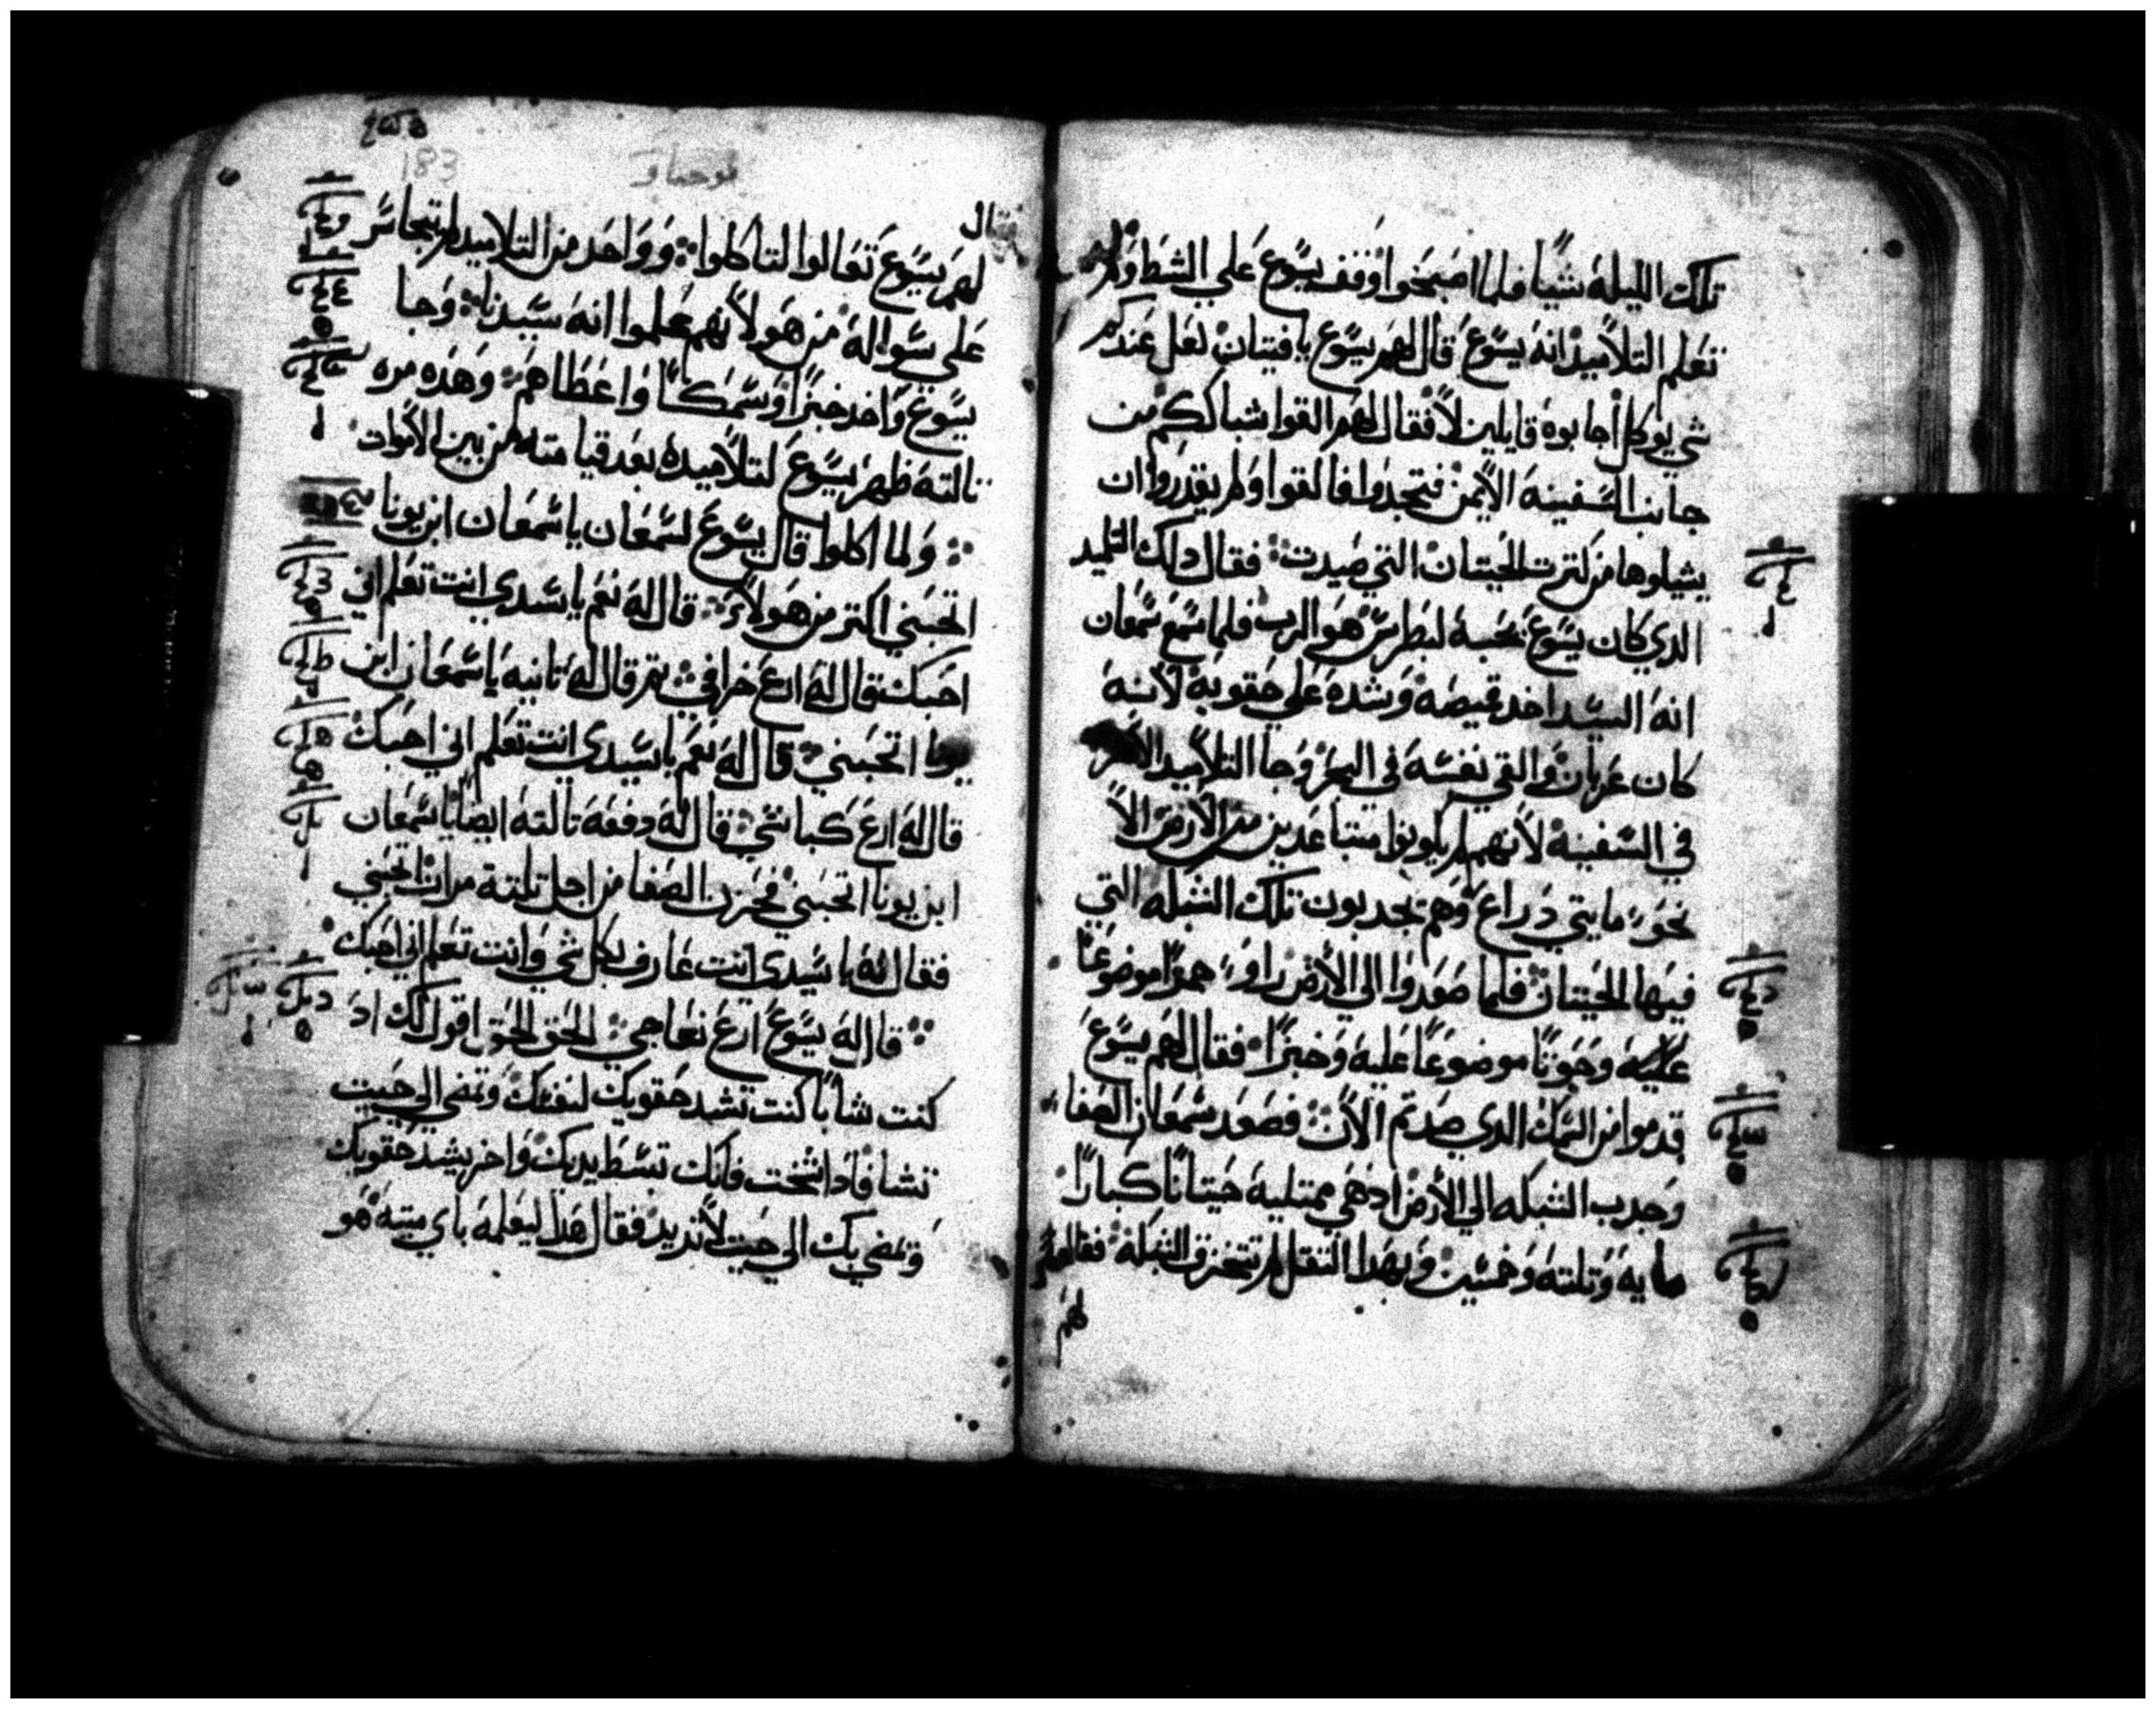 تلك الليله شيا فلما اصبحوا وقف يسوع علي الشط ولم
تعلم التلاميد انه يسوع قال لهم يسوع يا فتيان لعل عندكم
شي يوكل اجابوه قايلين لا فقال لهم القوا شباككم من
جانب السفينه الايمن فتجدوا فالقوا ولم يقدروا ان
يشيلوها من كترت الحيتان التي صيدت فقال دلك التلميد
الدي كان يسوع يحبه لبطرس هو الرب فلما سمع سمعان
انه السيد اخد قميصه وشده علي حقويه لانه
كان عريان والقي نفسه في البحر وجا التلاميد الاخر
في السفينه لانهم لم يكونوا متباعدين من الارض الا
نحو مايتي دراع وهم يجدبون تلك الشبكه التي
فيها الحيتان فلما صعدوا الي الارض راوا جمرا موضوعا
عليه وحوتا موضوعا عليه وخبزا فقال لهم يسوع
قدموا من السمك الدي صدتم الان فصعد سمعان الصفا
وجدب الشبكه الي الارض ادهي ممتليه حيتانا كبارا
مايه وتلته وخمسين وبهدا التقل لم تتخرق الشبكه فقال
لهم
183
يوحنا
فقال
لهم يسوع تعالوا لتاكلوا وواحد من التلاميد لم يتجاسر
علي سواله من هو لانهم علموا انه سيدنا وجا
يسوع واخد خبزا وسمكا واعطاهم وهده مره
تالته ظهر يسوع لتلاميده بعد قيامته من بين الاموات
ولما اكلوا قال يسوع لسمعان يا سمعان ابن يونا
اتحبني اكتر من هولاء قال له نعم يا سيدي انت تعلم اني
احبك قال له ارع خرافي تم قال له تانيه يا سمعان ابن
يونا اتحبني قال له نعم يا سيدي انت تعلم اني احبك
قال له ارع كباشي قال له دفعه تالته ايضا يا سمعان
ابن يونا اتحبني فحزن الصفا من اجل تلتة مرات اتحبني
فقال له يا سيدي انت عارف بكل شي وانت تعلم اني احبك
قال له يسوع ارع نعاجي الحق الحق اقول لك اد
كنت شابا كنت تشد حقويك لنفسك وتمضي الي حيت
تشا فادا شخت فانك تبسط يديك واخر يشد حقويك
وتمضي بك الي حيت لا تريد فقال هدا ليعلمه باي ميته هو